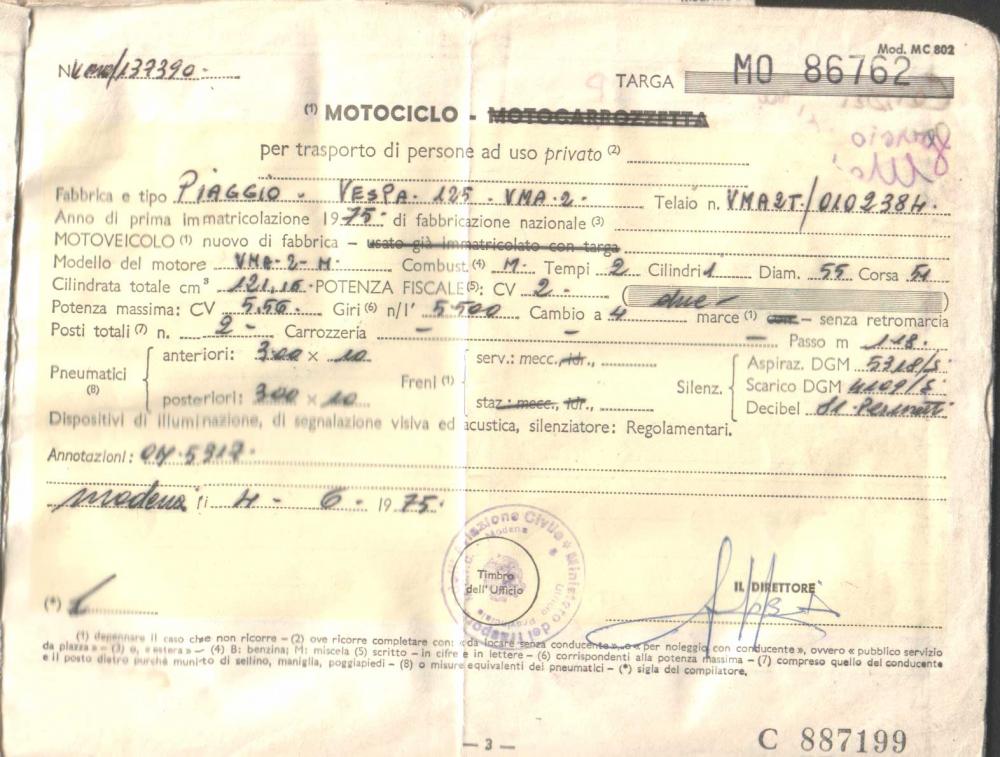 Mod. MC 802
N. /137390.
TARGA MO 86762
(1) MOTOCICLO - MOTOCARROZZETTA
per trasporto di persone ad uso privato (2)
Fabbrica e tipo PIAGGIO - VESPA. 125. VMA. 2. Telaio n. VMA2T/0102384.
Anno di prima immatricolazione 1975. di fabbricazione nazionale (3)
MOTOVEICOLO (1) nuovo di fabbrica – usato già immatricolato con targa
Modello del motore VMA-2-M. Combust. (4) M. Tempi 2 Cilindri 1 Diam. 55 Corsa 51
Cilindrata totale cm³ 121,16. POTENZA FISCALE (5): CV 2. (due -)
Potenza massima: CV 5,56. Giri (6) n/1' 5500 Cambio a 4 marce (1) con – senza retromarcia
Posti totali (7) n. 2 - Carrozzeria – – – Passo m 1.18.
Pneumatici (8)
anteriori: 3.00 × 10
posteriori: 3.00 × 10
Freni (1)
serv.: mecc., idr.,
staz.: mecc., idr.,
Silenz.
Aspiraz. DGM 5318/S
Scarico DGM 4109/S
Decibel 81
Dispositivi di illuminazione, di segnalazione visiva ed acustica, silenziatore: Regolamentari.
Annotazioni: 5317.
Modena li 4 - 6 - 1975.
Timbro
dell'Ufficio
IL DIRETTORE
(*)
(1) depennare il caso che non ricorre – (2) ove ricorre completare con: «da locare senza conducente», o « per noleggio con conducente », ovvero « pubblico servizio
da piazza » – (3) o, « estera » – (4) B: benzina; M: miscela (5) scritto – in cifre e in lettere – (6) corrispondenti alla potenza massima – (7) compreso quello del conducente
e il posto dietro purché munito di sellino, maniglia, poggiapiedi – (8) o misure equivalenti dei pneumatici – (*) sigla del compilatore.
— 3 —
C 887199